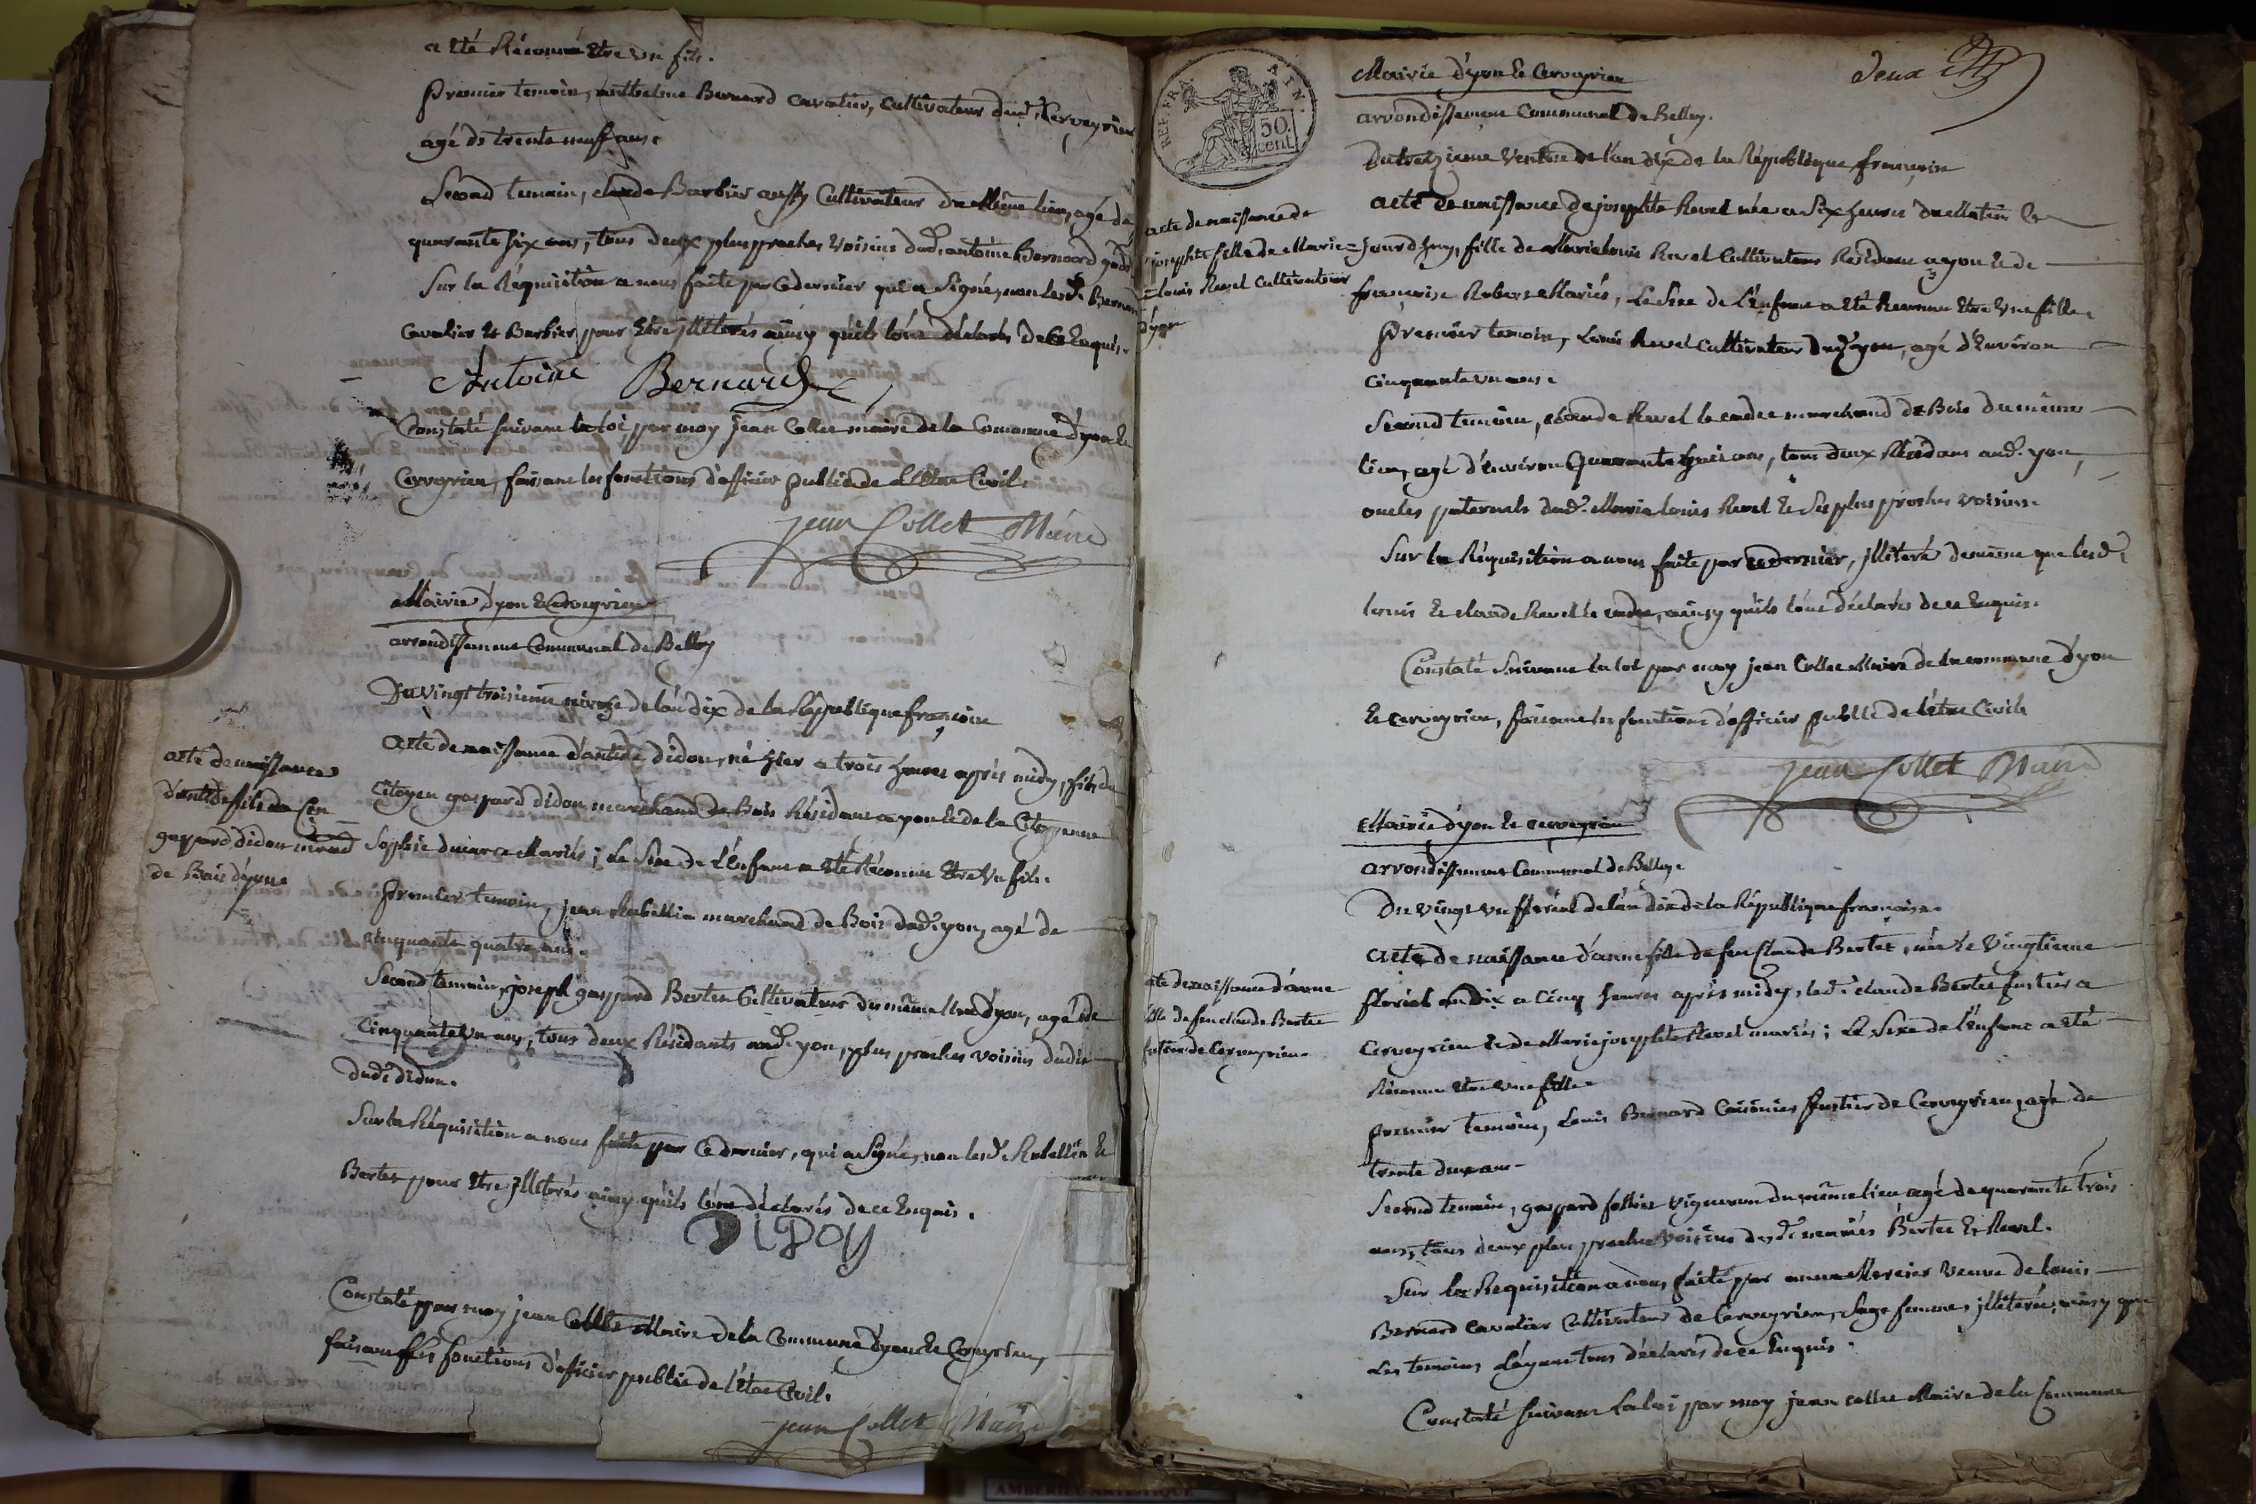 a été Réconnu Etre un fils.
Premier temoin, anthelme Bernard cavalier, cultivateur dud. Cerveyrieu
agé de trente neuf ans.
Second temoin, claude Barbier aussy Cultivateur du Même lieu, agé de
quarante six ans, tous deux plus proches voisins dud. antoine Bernard
Sur la Réquisition a nous faite par Ce dernier qui a Signé, non lesd. Bernard
Cavalier et Barbier pour Etre jllitérés ainsy qu'ils l'ont déclarés de Ce Enquis.
Antoine Bernard
Constaté suivant la loi par moy jean Collet maire de la Commune d'yon et
Cerveyrieu, faisant les fonctions d'officier public de l'Etat Civil.
jean Collet Maire
Mairie d'yon et Cerveyrieu
arrondissement Communal de Belley
Du vingt troisieme nivose de l'an dix de la République françoise
acte de naissance
d'antide fils de Cen
gaspard didon marchd
de Bois d'yon
acte de naissance d'antide didon, né hier a trois heures après midy, fils du
Citoyen gaspard didon marchand de Bois Résidant a yon et de la Citoyenne
Sophie Mariés ; le Sexe de l'Enfant a été Réconnu Etre Un fils.
Premier temoin, jean Rubellin marchand de Bois dud. yon, agé de
cinquante quatre ans.
Second temoin, joseph gaspard Bertet Cultivateur du même lieu d'yon, agé de
Cinquante un ans, tous deux Résidants aud. yon, plus proches voisins dudit
dud. didon.
Sur la Réquisition a nous faite par Ce dernier, qui a Signé, non lesd. Rubellin et
Bertet pour Etre jllitérés ainsy qu'ils l'ont déclarés de ce Enquis.
DIDON
Constaté par moy jean Collet Maire de la Commune d'yon et Cerveyrieu,
faisant les fonctions d'officier public de l'Etat Civil.
jean Collet Maire
REP. FRA.
50
cent
deux
Mairie d'yon et Cerveyrieu
arrondissement Communal de Belley.
Du treizieme Ventose de l'an dix de la République françoise
acte de naissance de
josephte fille de Marie=
=louis Revel Cultivateur
d'yon
acte de naissance de josephte Revel née a Six heures du Matin Ce
jourd'huy, fille de Marie louis Revel Cultivateur Résidant a yon et de
françoise Robert Mariés, le Sexe de l'Enfant a été Reconnu Etre Une fille.
Premier temoin, louis Revel Cultivateur dud. yon, agé d'Environ
cinquante un ans.
Second temoin, claude Revel le cadet marchand de Bois du même
lieu, agé d'environ Quarante huit ans, tous deux Résidans aud. yon,
oncles paternels dud. Marie louis Revel et Ses plus proches voisins.
Sur la Réquisition a nous faite par ce dernier, jllitéré de même que lesd.
louis et claude Revel le cadet, ainsy qu'ils l'ont déclarés de ce Enquis.
Constaté Suivant la loi par moy jean Collet Maire de la commune d'yon
et Cerveyrieu, faisant les fonctions d'officier public de l'état Civil.
jean Collet Maire
Mairie d'yon et Cerveyrieu
arrondissement Communal de Belley.
Du vingt un floréal de l'an dix de la République françoise.
acte de naissance d'anne
fille de feu claude Bertet
fustier de Cerveyrieu.
acte de naissance d'anne fille de feu Claude Bertet, née le Vingtieme
floréal an Dix a Cinq heures après midy, led. claude Bertet fustier a
Cerveyrieu et de Marie josephte Revel mariés ; le Sexe de l'enfant a été
Réconnu Etre une fille.
premier temoin, louis Bernard fustier de Cerveyrieu, agé de
trente deux ans
Second temoin, gaspard vigneron du même lieu agé de quarante trois
ans, tous deux plus proches voisins desd. Bertet et Revel.
Sur la Requisition a nous faite par anne Mercier Veuve de louis
Bernard Cavalier Cultivateur de Cerveyrieu, Sage femme, jllitérée, ainsy que
les temoins l'ayant tous déclarés de ce Enquis.
Constaté Suivant la loi par moy jean collet Maire de la Commune